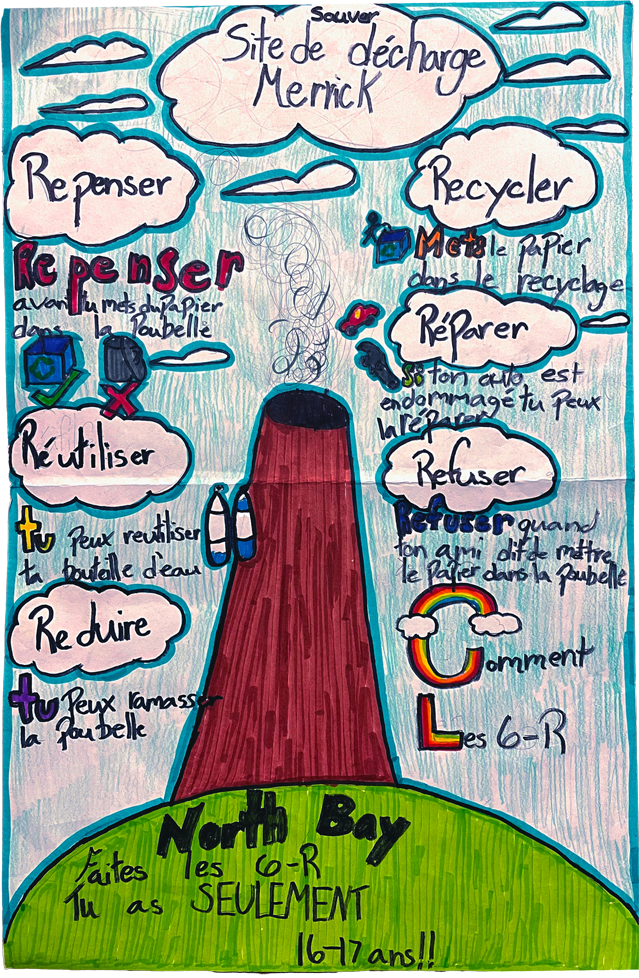 Sauver
Site de décharge
Merrick
Repenser
Repenser
avant tu mets du papier
dans la poubelle
Réutiliser
tu peux reutiliser
ta bouteille d'eau
Reduire
tu peux ramasser
la poubelle
Recycler
Mets le papier
dans le recyclage
Réparer
Si ton auto est
endommagé tu peux
la réparer
Refuser
Refuser quand
ton ami dit de mettre
le papier dans la poubelle
Comment
Les 6-R
North Bay
Faites les 6-R
Tu as SEULEMENT
16-17 ans!!